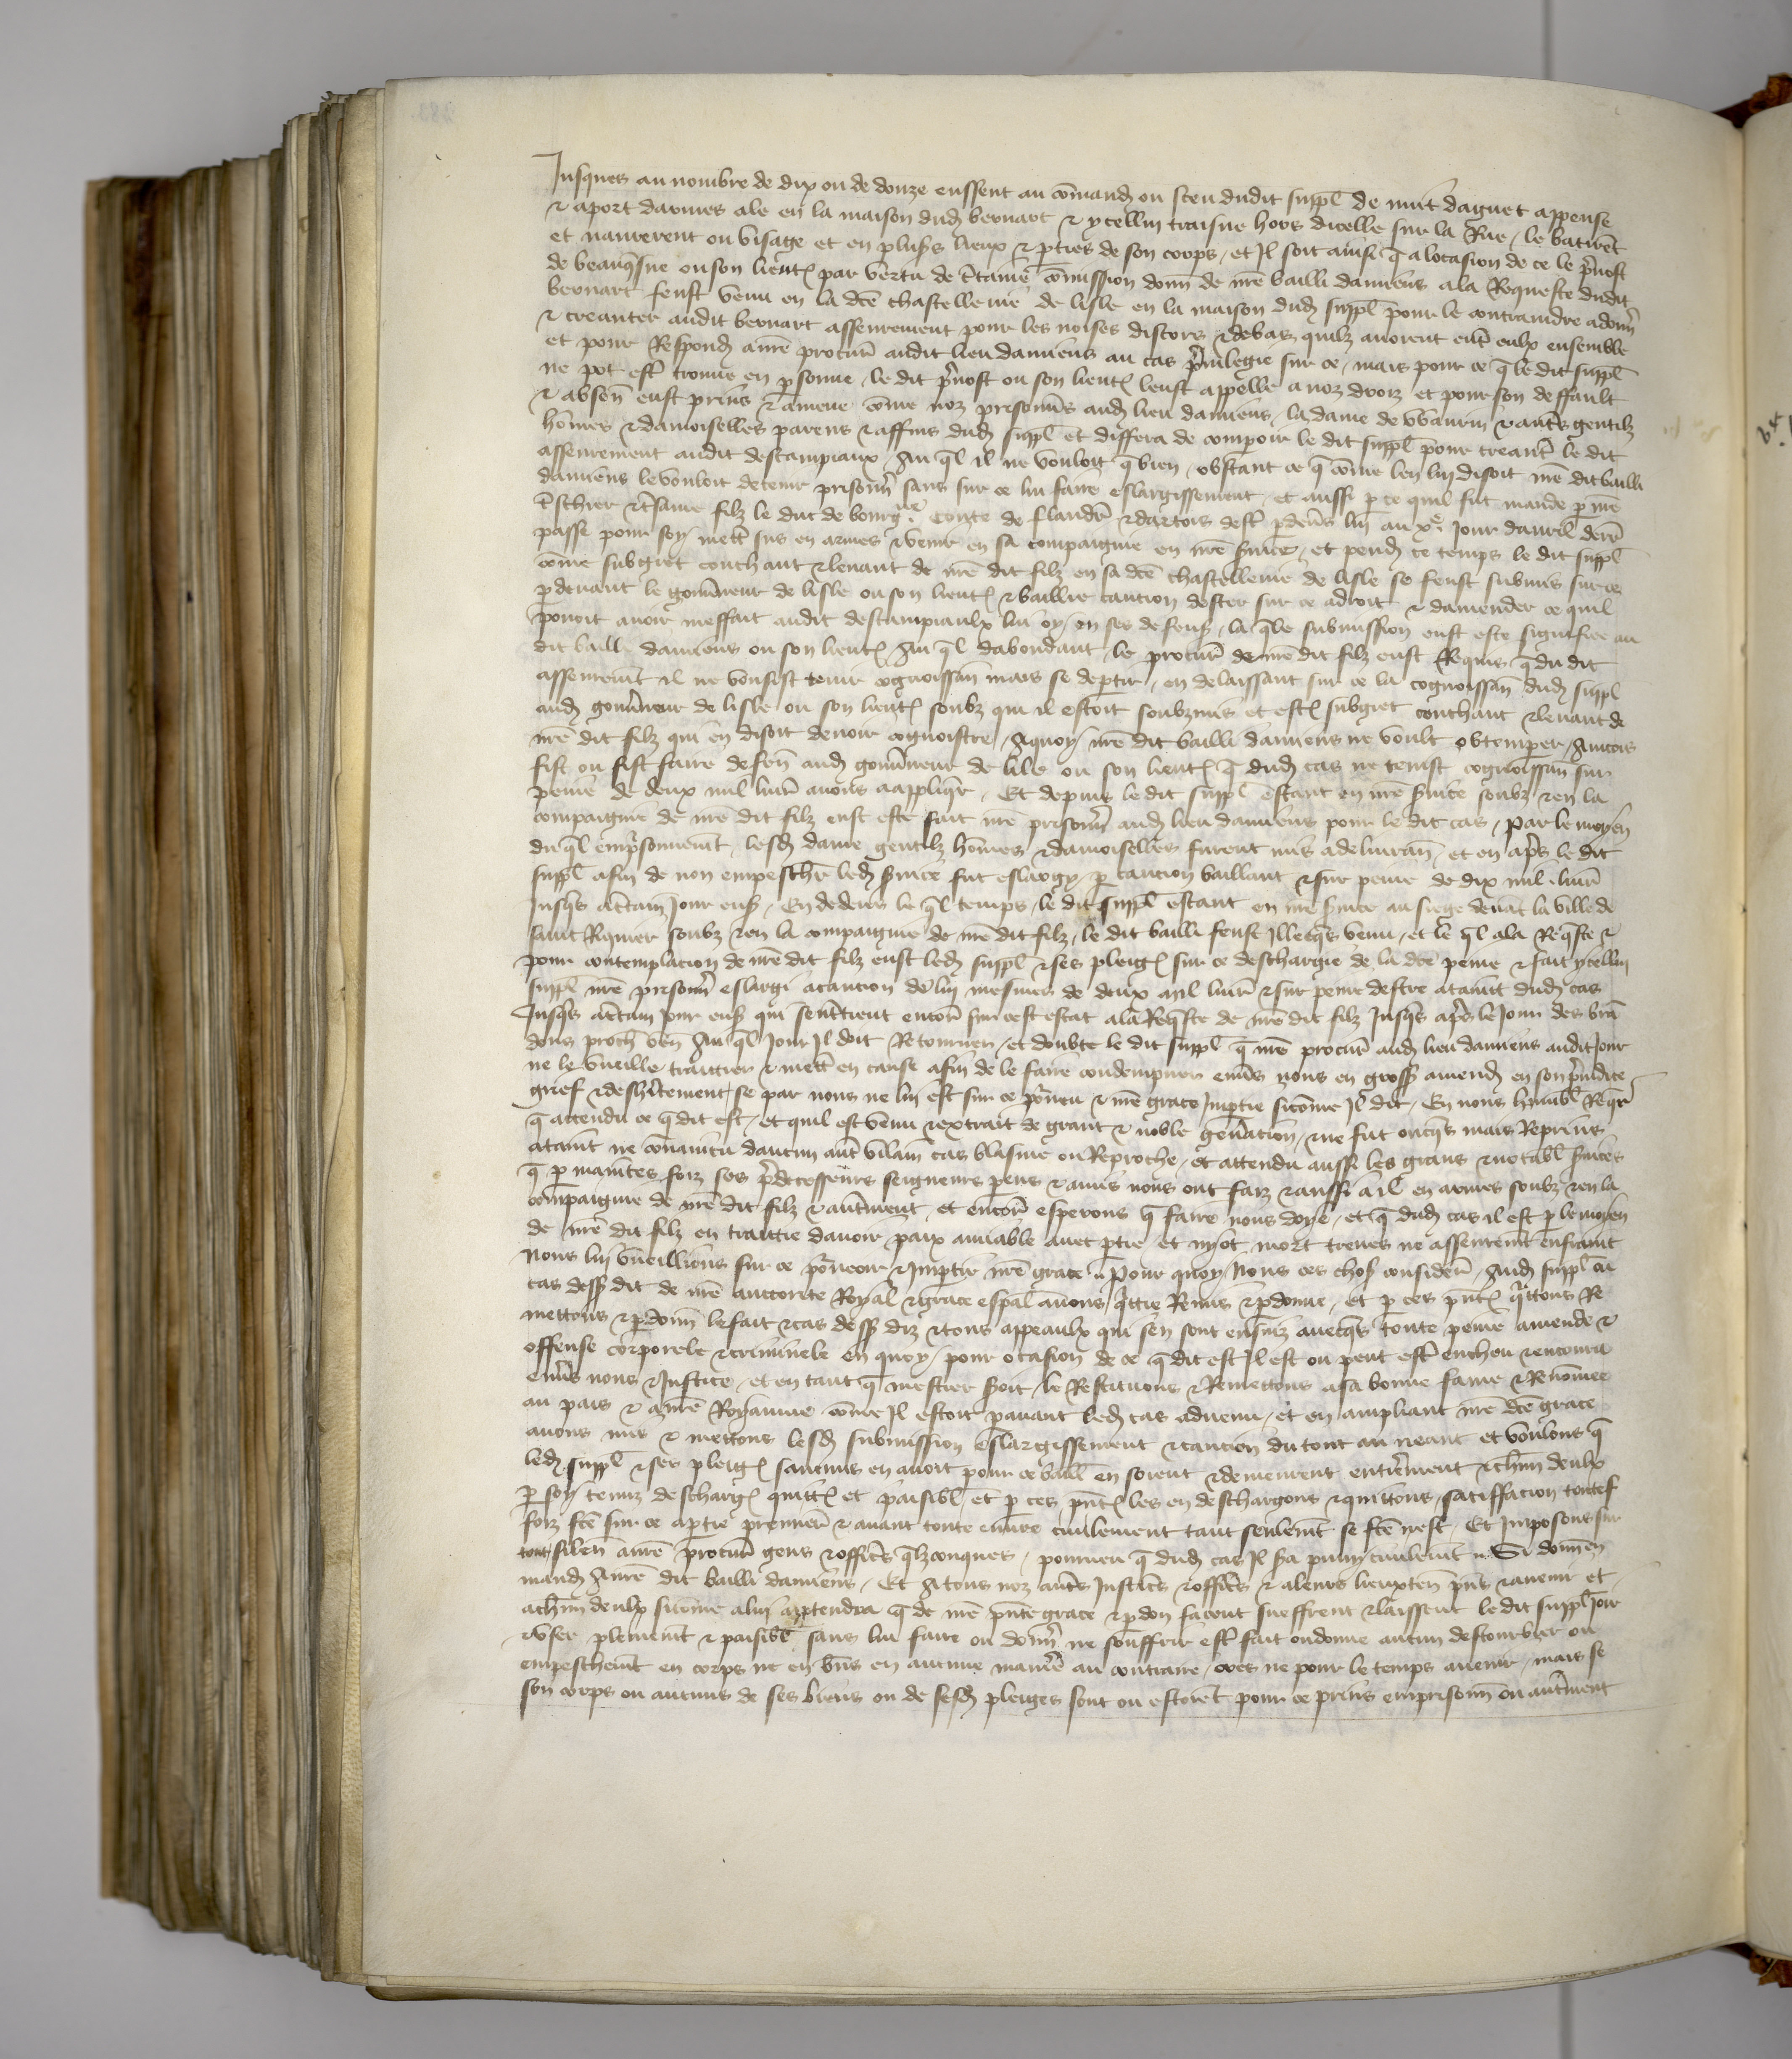 Jusques au nombre de dix ou de douze eussent au cōmand ou sceu dudit suppl de nuit daguet appense
& aport darmes ale en la maison dud bernart & ycellui traisne hors dicelle sur la Rue / le batirēt
et navrerent ou visage et en plus lieux & pties de son corps / et Jl soit ainsi q̄ a locasion de ce le p̄vost
de beauq̄sne ou son lieut par vertu de c̄taine cōmission donn de nr̄e bailli damiens a la Requeste dudit
bernart feust venu en la dc̄e chastellenie de lisle en la maison dud suppl pour le contraindre a donn
& creanter audit bernart asseurement pour les noises discors & debas quilz avoient ent̄ eulx ensemble
et pour Respond a nr̄e procur̄ audit lieu damiens au cas p̄vilegie sur ce / mais pour ce q̄ le dit suppl
ne pot est̄ trouve en psonne / le dit p̄vost ou son lieut leust appelle a noz droiz et pour son deffault
& absen eust prins & amene cōme noz prisonn̄s aud lieu damiens / la dame de Wavrin & aut̄s gentilz
hōmes & damoiselles parens & affins dud suppl et differa de comparoir le dit suppl pour creant̄ le dit
asseurement audit destampiaux / Au q̄l il ne vouloit q̄ bien / obstant ce q̄ cōme len lui disoit nr̄e dit bailli
damiens le vouloit detenir prisonn̄ sans sur ce lui faire eslargissement / et aussi p ce quil fut mande p nr̄e
t̄schier & t̄same filz le duc de bourgne Conte de flandr̄ & dartois dest̄ pdevs lui au xe Jour davril derr̄
passe pour soy mett̄ sus en armes & venir en sa compaignie en nr̄e s̄vice / et pend ce temps le dit suppl
cōme subgiet couchant & levant de nr̄e dit filz en sa dc̄e chastellenie de lisle se feust submis sur ce
pdevant le gouv̄neur de lisle ou son lieut & baillie caution dester sur ce a droit & damender ce quil
pouoit avoir meffait audit destampiaulx lui oy en ses defens / la q̄le submission eust este signifiee au
dit bailli damiens ou son lieut Au q̄l dabondant le procur̄ de nr̄e dit filz eust Requis q̄ du dit
asseurem̄t il ne voulsist tenir cognoissan mais se deptir / en delaissant sur ce la cognoissan dud suppl
aud gouv̄neur de lisle ou son lieut soubz qui il estoit soubzmis et est subgiet couchant & levant de
nr̄e dit filz qui en disoit devoir cognoistre / A quoy nr̄e dit bailli damiens ne voult obtemperer / Aincois
fist ou fist faire defen aud gouv̄neur de lile ou son lieut q̄ dud cas ne tenist cognoissan sur
peine de deux mil livr̄ a nous a appliq̄r / Et depuis le dit suppl estant en nr̄e s̄vice soubz & en la
compaignie de nr̄e dit filz eust este fait nr̄e prisonn̄ aud lieu damiens pour le dit cas / Par le moyen
du q̄l emp̄sonnem̄t / lesd dame gentilz hōmes & damoiselles furent mis a delivran / et en ap̄s le dit
suppl afin de non empesch̄r led s̄vice fut eslargy p caution baillant & sur peine de dix mil livr̄
Jusq̄s a c̄tain Jour ens / En dedens le q̄l temps / le dit suppl estant en nr̄e s̄vice au siege devāt la ville de
saint Riquier soubz & en la compaignie de nr̄e dit filz / le dit bailli feust Jllecq̄s venu / et le q̄l a la Req̄ste &
pour contemplacion de nr̄e dit filz eust led suppl & ses pleig sur ce deschargie de la dc̄e peine & fait ycellui
suppl nr̄e prisonn̄ eslargi a caution de lui mesmes de deux mil livr̄ & sur peine destre ataint dud cas
Jusq̄s a c̄tain Jour ens qui sent̄tient encor̄ sur cest estat a la Req̄ste de nr̄e dit filz Jusq̄s ap̄s le Jour des bran
dons proch ven Au q̄l Jour Jl doit Retourner / et doubte le dit suppl q̄ nr̄e procur̄ aud lieu damiens audit Jour
ne le vueille traitier & mett̄ en cause afin de le faire condempner env̄s nous en gross amend en son p̄iudice
grief & desh̄itement se par nous ne lui est sur ce p̄veu & nr̄e grace Jmptie sicōme Jl dit / En nous humbl Req̄r
q̄ attendu ce q̄ dit est / et quil est venu & extrait de grant & noble gen̄acion / & ne fut oncq̄s mais Reprins
ataint ne convaincu daucun aut̄ vilain cas blasme ou Reproche / et attendu aussi les grans & notabl s̄vices
q̄ p maintes foiz ses p̄decesseurs seigneurs pens & amis nous ont faiz & aussi a il en armes soubz & en la
compaignie de nr̄e dit filz & aut̄ment / et encor̄ esperons q̄ faire nous doye / et q̄ dud cas il est p le moyen
de nr̄e dit filz en traittie davoir paix amiable avec ptie et ny ot mort treves ne asseurem̄t enfraint
Nous lui vueillions sur ce p̄veoir & Jmptir nr̄e grace / Pour quoy Nous ces chos consider̄ / Aud suppl ou
cas dessus dit de nr̄e auctorite Royal & grace espal avons q̄ttie Remis & pdonne / et p ces pn̄t q̄ttons Re
mettons & pdonn le fait & cas dess diz & tous appeaulx qui sen sont ensuiz avecq̄s toute peine amende &
offense corporele & criminele en quoy pour ocasion de ce q̄ dit est Jl est ou peut est̄ encheu & encouru
env̄s nous & Justice / et en tant q̄ mestier s̄oit / le Restituons & Remettons a sa bonne fame & Renōmee
au pais & a nr̄e Royaume cōme Jl estoit pavant led cas advenu / et en ampliant nr̄e dc̄e grace
avons mis & mettons lesd submission eslargissement & caution du tout au neant et voulons q̄
led suppl & ses pleig saucuns en avoit pour ce baill en soient & demeurent entier̄ment & ch̄un deulx
p soy tenuz descharg quitt et paisibl / et p ces pn̄t les en deschargons & quittons / satiffacion toutef
foiz fc̄e sur ce a ptie premier̄ & avant toute euvre civilement tant seulem̄t se fc̄e nest / Et Jmposons sur
tout silen a nr̄e procur̄ gens & offic̄s q̄lzconques / pourveu q̄ dud cas Jl s̄a puny civilem̄t / Si donn en
mand A nr̄e dit bailli damiens / Et A tous noz aut̄s Justic̄s & offic̄s & a leurs lieuxten pn̄s & avenir et
a ch̄un deulx sicōme a lui apptendra q̄ de nr̄e pn̄te grace & pdon facent sueffrent & laissent le dit suppl Joir
& user plenem̄t & paisibl sans lui faire ou donn̄ ne souffrir est̄ fait ou donne aucun destourbier ou
empeschem̄t en corps ne en biens en aucune manier̄ au contraire / ores ne pour le temps avenir / mais se
son corps ou aucuns de ses biens ou de sesd pleiges sont ou estoiēt pour ce prins emprisonn ou aut̄ment